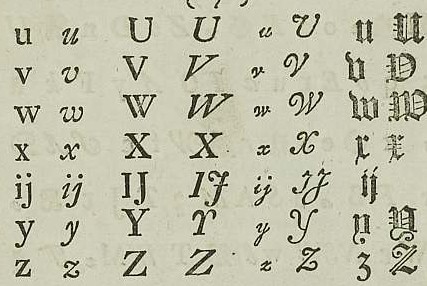 u u U U u U u U
v v V V v V v V
w w W W w W w W
x x X X x X x x
ij ij IJ IJ ij IJ ij
y y Y Y y Y y Y
z z Z Z z Z z Z